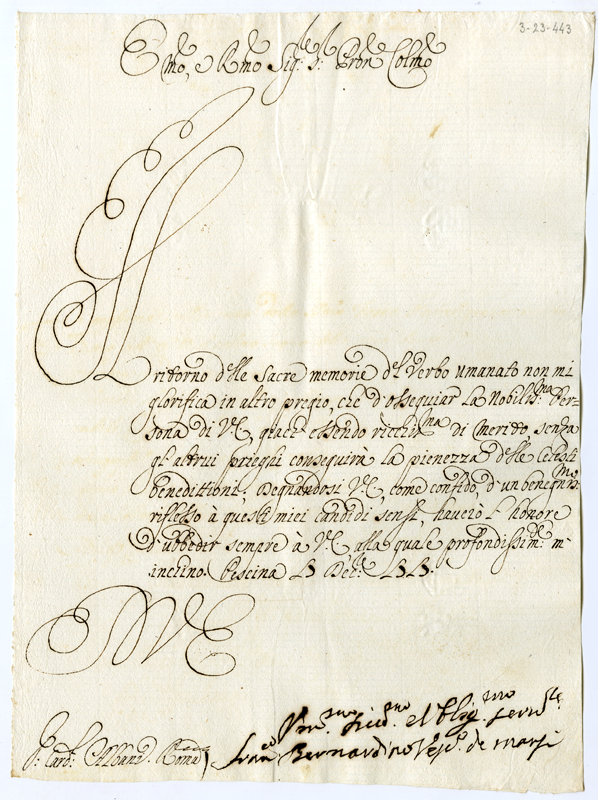 3-23-443
Emo, e Rmo Sig:r Sig:r Pron Colmo
Il ritorno delle Sacre memorie del Verbo umanato non mi
glorifica in altro pregio, che d'osseguiar la Nobiliss:ma Per-
sona di V.E. quache essendo ricchiss:ma di merito, senza
gl'altrui prieghi conseguirà la pienezza delle Celesti
benedittioni. Degnandosi V.E., come confido, d'un benegniss:mo
riflesso à questi miei candidi sensi, haverò l'honore
d'ubbedir sempre à V.E. alla quale profondissim:te m'
inclino. Pescina
Di V E
S:r Card: Albani. Roma
Um:mo et Oblig:mo
Fran:co Bernardino Vesc:o de Marsi